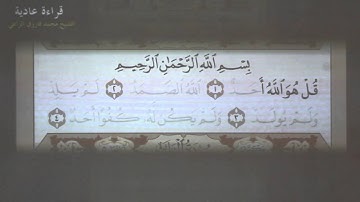 قراءة عادية
الشيخ محمد فاروق الراعي
بِسْمِ ٱللَّهِ ٱلرَّحْمَٰنِ ٱلرَّحِيمِ
قُلْ هُوَ ٱللَّهُ أَحَدٌ ١ ٱللَّهُ ٱلصَّمَدُ ٢ لَمْ يَلِدْ
وَلَمْ يُولَدْ ٣ وَلَمْ يَكُن لَّهُۥ كُفُوًا أَحَدٌۢ ٤